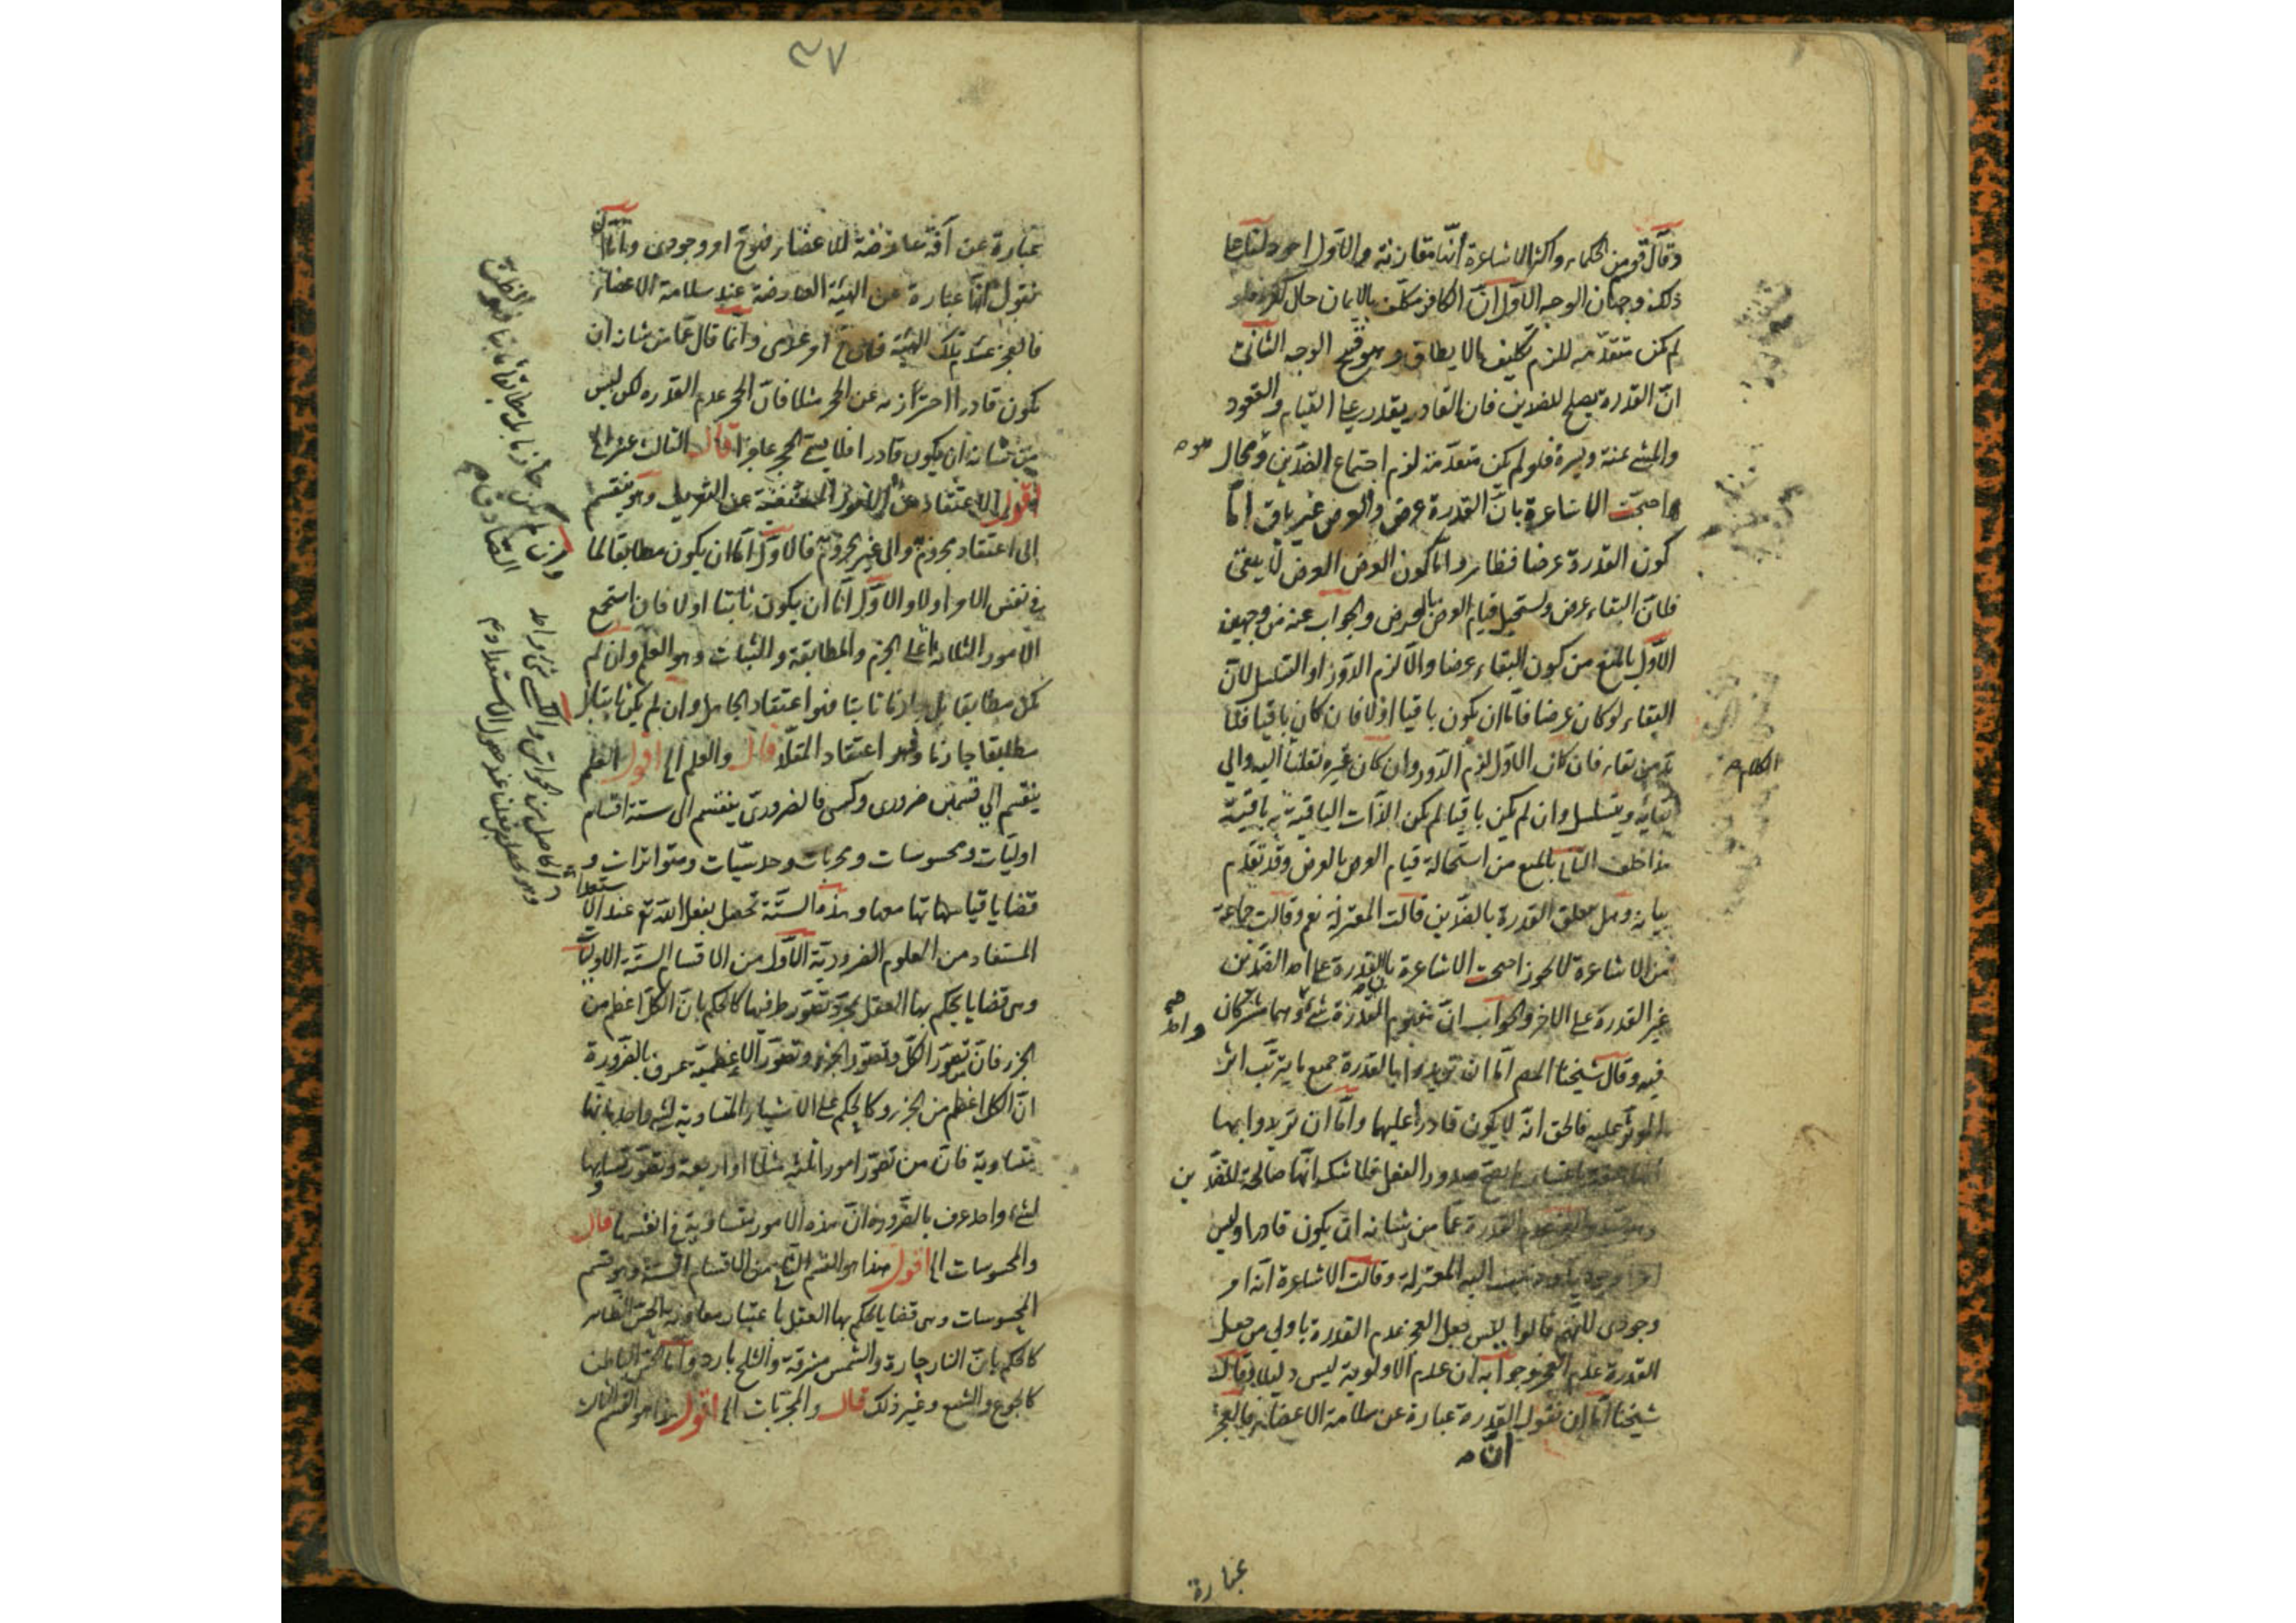 وقال قوم من الحكماء واكثر الاشاعرة انها مقارنة والاول اجود لنا على
ذلك وجهان الوجه الاول ان الكافر مكلف بالايمان حال كفره فلو
لم يكن متقدمة للزم تكليف ما لا يطاق وهو قبيح الوجه الثاني
ان القدرة يصلح للضدين فان القادر يقدر على القيام والقعود
والمشي يمنة ويسرة فلو لم يكن متقدمة لزم اجتماع الضدين ومحال
واحتجت الاشاعرة بان القدرة عرض والعرض غير باق اما
كون القدرة عرضا فظاهر واما كون العرض لا يبقى
فلان البقاء عرض ويستحيل قيام العرض بالعرض والجواب عنه من وجهين
الاول بالمنع من كون البقاء عرضا والا لزم الدور او التسلسل لان
البقاء لو كان عرضا فاما ان يكون باقيا او لا فان كان باقيا فلا
بد من بقاء فان كان الاول لزم الدور وان كان غيره نقلنا اليه والى
بقائه ويتسلسل وان لم يكن باقيا لم يكن الذات الباقية به باقية
هذا خلف الثاني بالمنع من استحالة قيام العرض بالعرض وقد تقدم
بيانه وهل يتعلق القدرة بالضدين قالت المعتزلة نعم وقالت جماعة
من الاشاعرة لا يجوز احتجت الاشاعرة بان القدرة على احد الضدين
غير القدرة على الاخر والجواب ان مفهوم القدرة شيء وهما مشتركان
فيه وقال شيخنا المص اما ان تريدوا بالقدرة جميع ما يترتب اثر
المؤثر عليه فالحق انه لا يكون قادرا عليهما واما ان تريدوا بها
صدور الفعل فلا شك انها صالحة للضدين
القدرة عما من شانه ان يكون قادرا وليس
اليه المعتزلة وقالت الاشاعرة انه امر
وجودي لانهم قالوا ليس جعل العجز عدم القدرة باولى من جعل
القدرة عدم العجز وجوابه ان عدم الاولوية ليس دليلا وقال
شيخنا اما ان نقول القدرة عبارة عن سلامة الاعضاء فالعجز
الكلام
عبارة
٣٧
عبارة عن آفة عارضة للاعضاء فهو ح امر وجودي واما ان
نقول انها عبارة عن الهيئة العارضة عند سلامة الاعضاء
فالعجز عدم تلك الهيئة فهو ح امر عدمي وانما قال عما من شانه ان
يكون قادرا احترازه عن الحجر مثلا فان الحجر عدم القدرة لكن ليس
من شانه ان يكون قادرا فلا يسمى الحجر عاجزا قال الثالث عشر الى
اقول الاعتقاد من الامور المستغنية عن التعريف وهو ينقسم
الى اعتقاد مجزوم والى غير مجزوم فالاول اما ان يكون مطابقا لما
في نفس الامر او لا والاول اما ان يكون ثابتا او لا فان استجمع
الامور الثلاثة اعني الجزم والمطابقة والثبات وهو العلم وان لم
يكن مطابقا بل جازما ثابتا فهو اعتقاد الجاهل وان لم يكن ثابتا بل
مطابقا جازما فهو اعتقاد المقلد قال والعلم الى اقول العلم
ينقسم الى قسمين ضروري وكسبي فالضروري ينقسم الى ستة اقسام
اوليات ومحسوسات ومجربات وحدسيات ومتواترات و
قضايا قياساتها معها وهذه الستة تحصل بفعل الله تع عند الاستعداد
المستفاد من العلوم الضرورية الاول من الاقسام الستة الاوليات
وهي قضايا يحكم بها العقل بمجرد تصور طرفيها كالحكم بان الكل اعظم من
الجزء فان تصور الكل وتصور الجزء وتصور الاعظمية عرف بالضرورة
ان الكل اعظم من الجزء وكالحكم على الاشياء المتساوية لشيء واحد بانها
متساوية فان من تصور امورا ثلثة مثلا او اربعة وتصور تساويها
لشيء واحد عرف بالضرورة ان هذه الامور متساوية في انفسها قال
والمحسوسات الى اقول هذا هو القسم الثاني من الاقسام الستة وهو قسم
المحسوسات وهي قضايا يحكم بها العقل باعتبار معاونة الحس الظاهر
كالحكم بان النار حارة والشمس مشرقة والثلج بارد واما الحس الباطن
كالجوع والشبع وغير ذلك قال والمجربات الى اقول هذا هو القسم الثالث